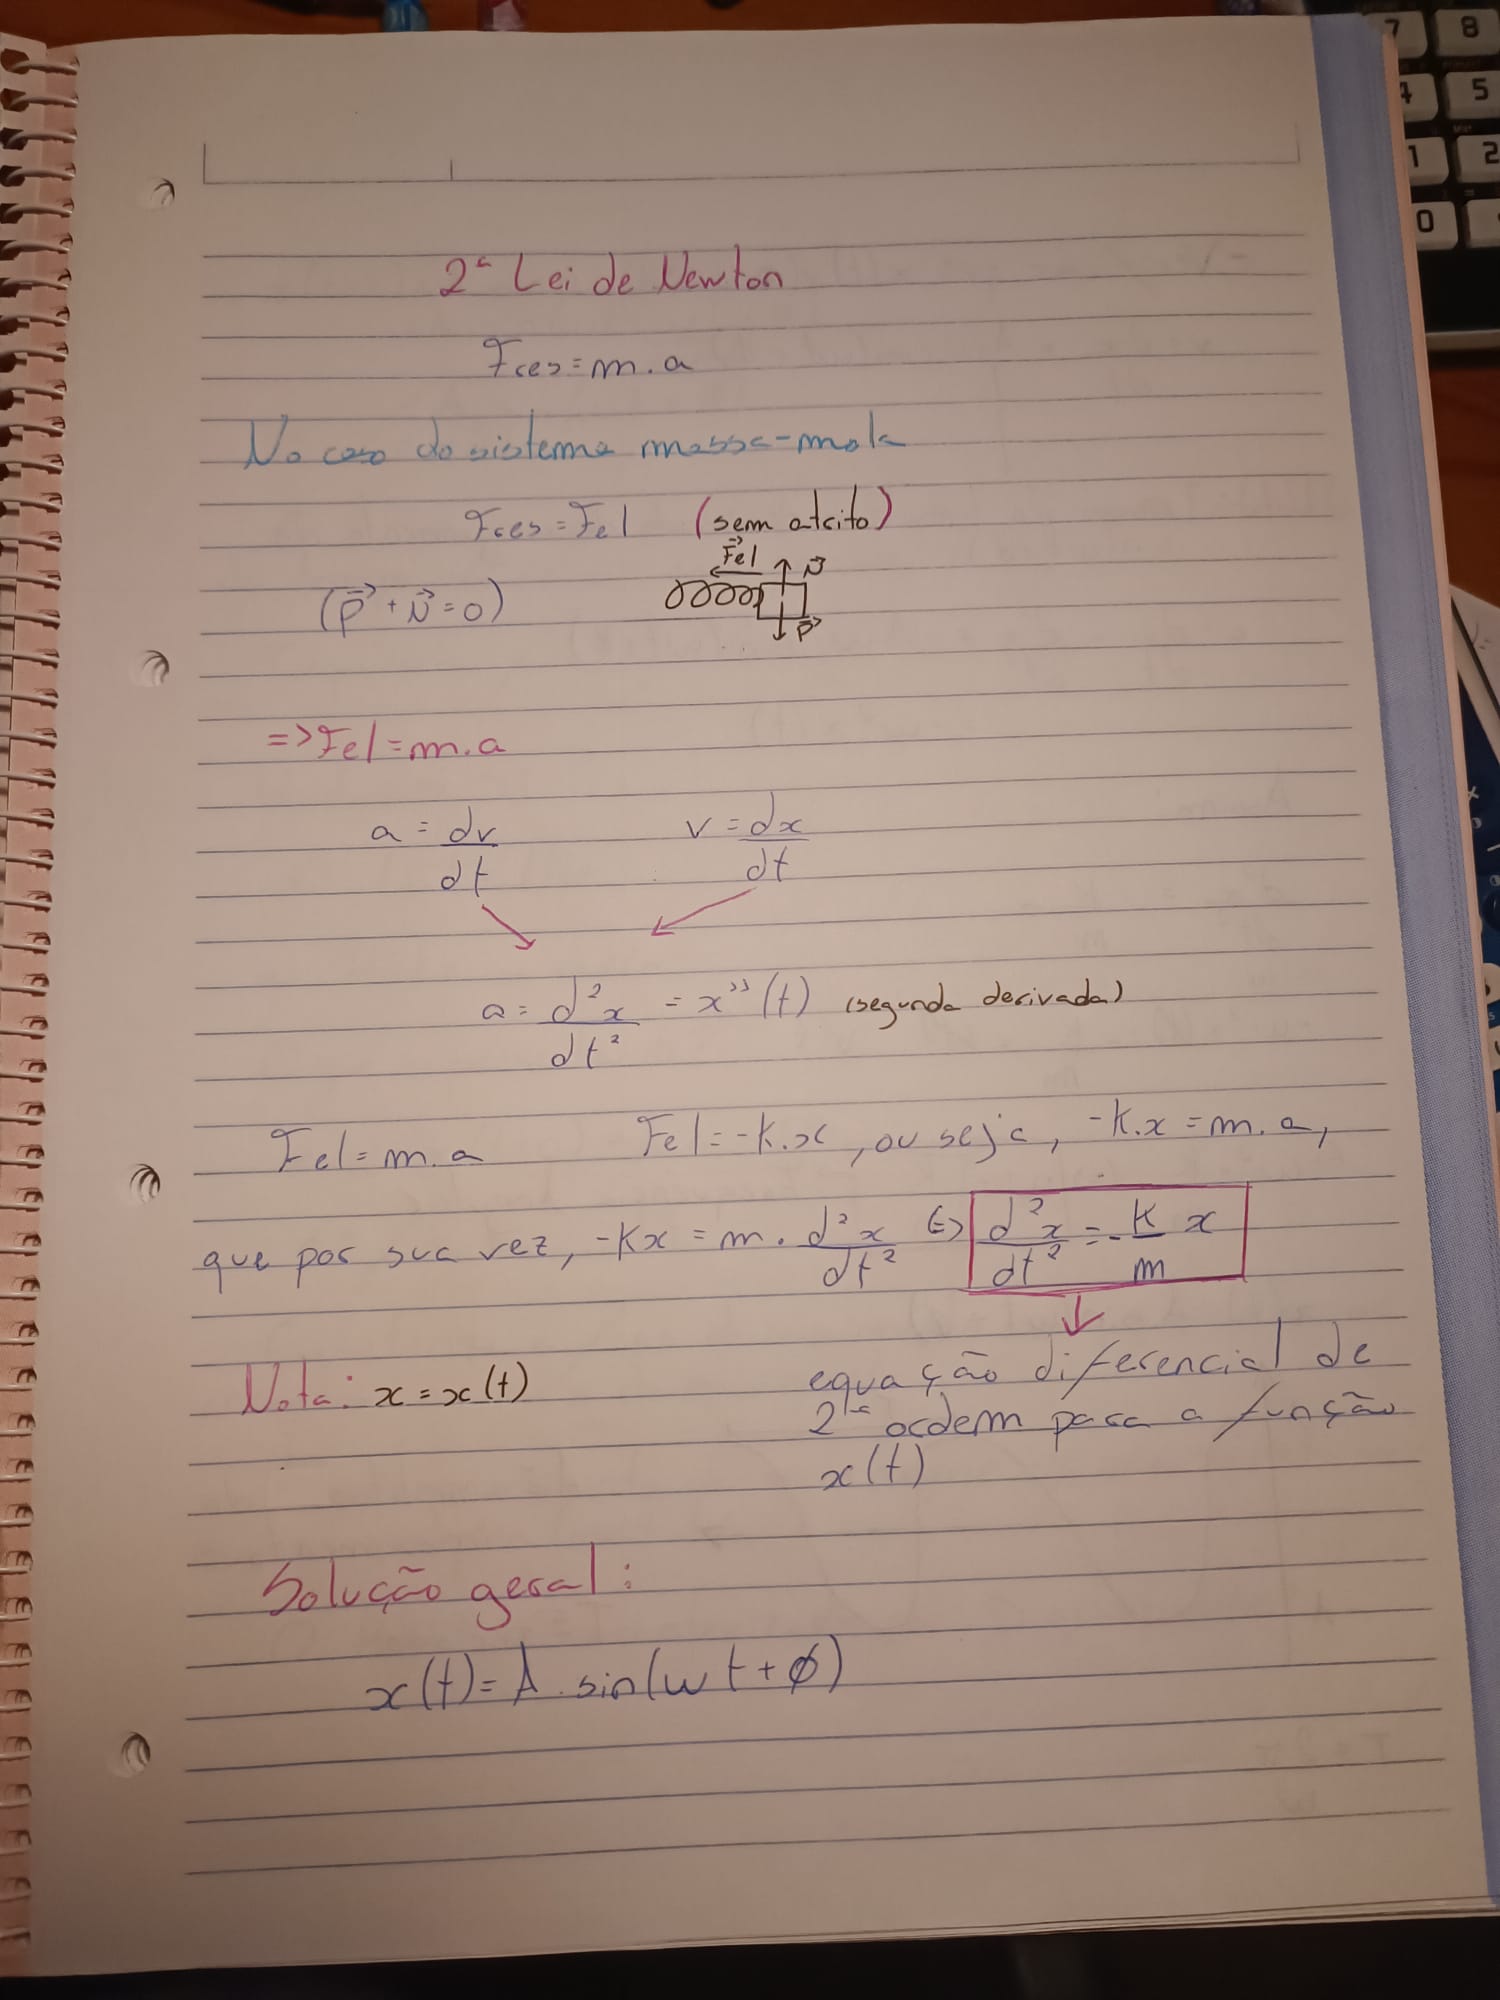 2ª Lei de Newton
Fres = m.a
No caso do sistema massa-mola
Fres = Fel (sem atrito)
F⃗el N⃗
(P⃗ + N⃗ = 0)
P⃗
=> Fel = m.a
a = dv/dt v = dx/dt
a = d²x/dt² = x''(t) (segunda derivada)
Fel = m.a Fel = -K.x, ou seja, -K.x = m.a,
que por sua vez, -Kx = m . d²x/dt² <=> d²x/dt² = -K/m x
Nota: x = x(t)
equação diferencial de
2ª ordem para a função
x(t)
Solução geral:
x(t) = A . sin(wt + ϕ)
7 8
4 5
1 2
0